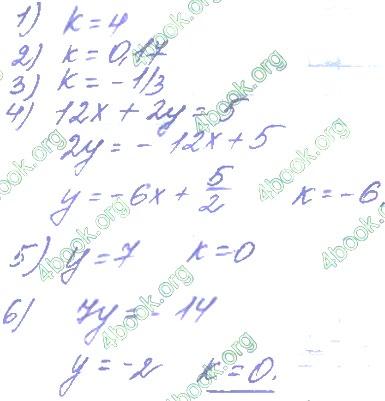 1) k = 4
2) k = 0,17
3) k = -1/3
4) 12x + 2y = 5
2y = - 12x + 5
y = -6x + 5/2 k = -6,
5) y = 7 k = 0
6) 7y = - 14
y = -2 k = 0.
4book.org
4book.org
4book.org
4book.org
4book.org
4book.org
4book.org
4book.org
4book.org